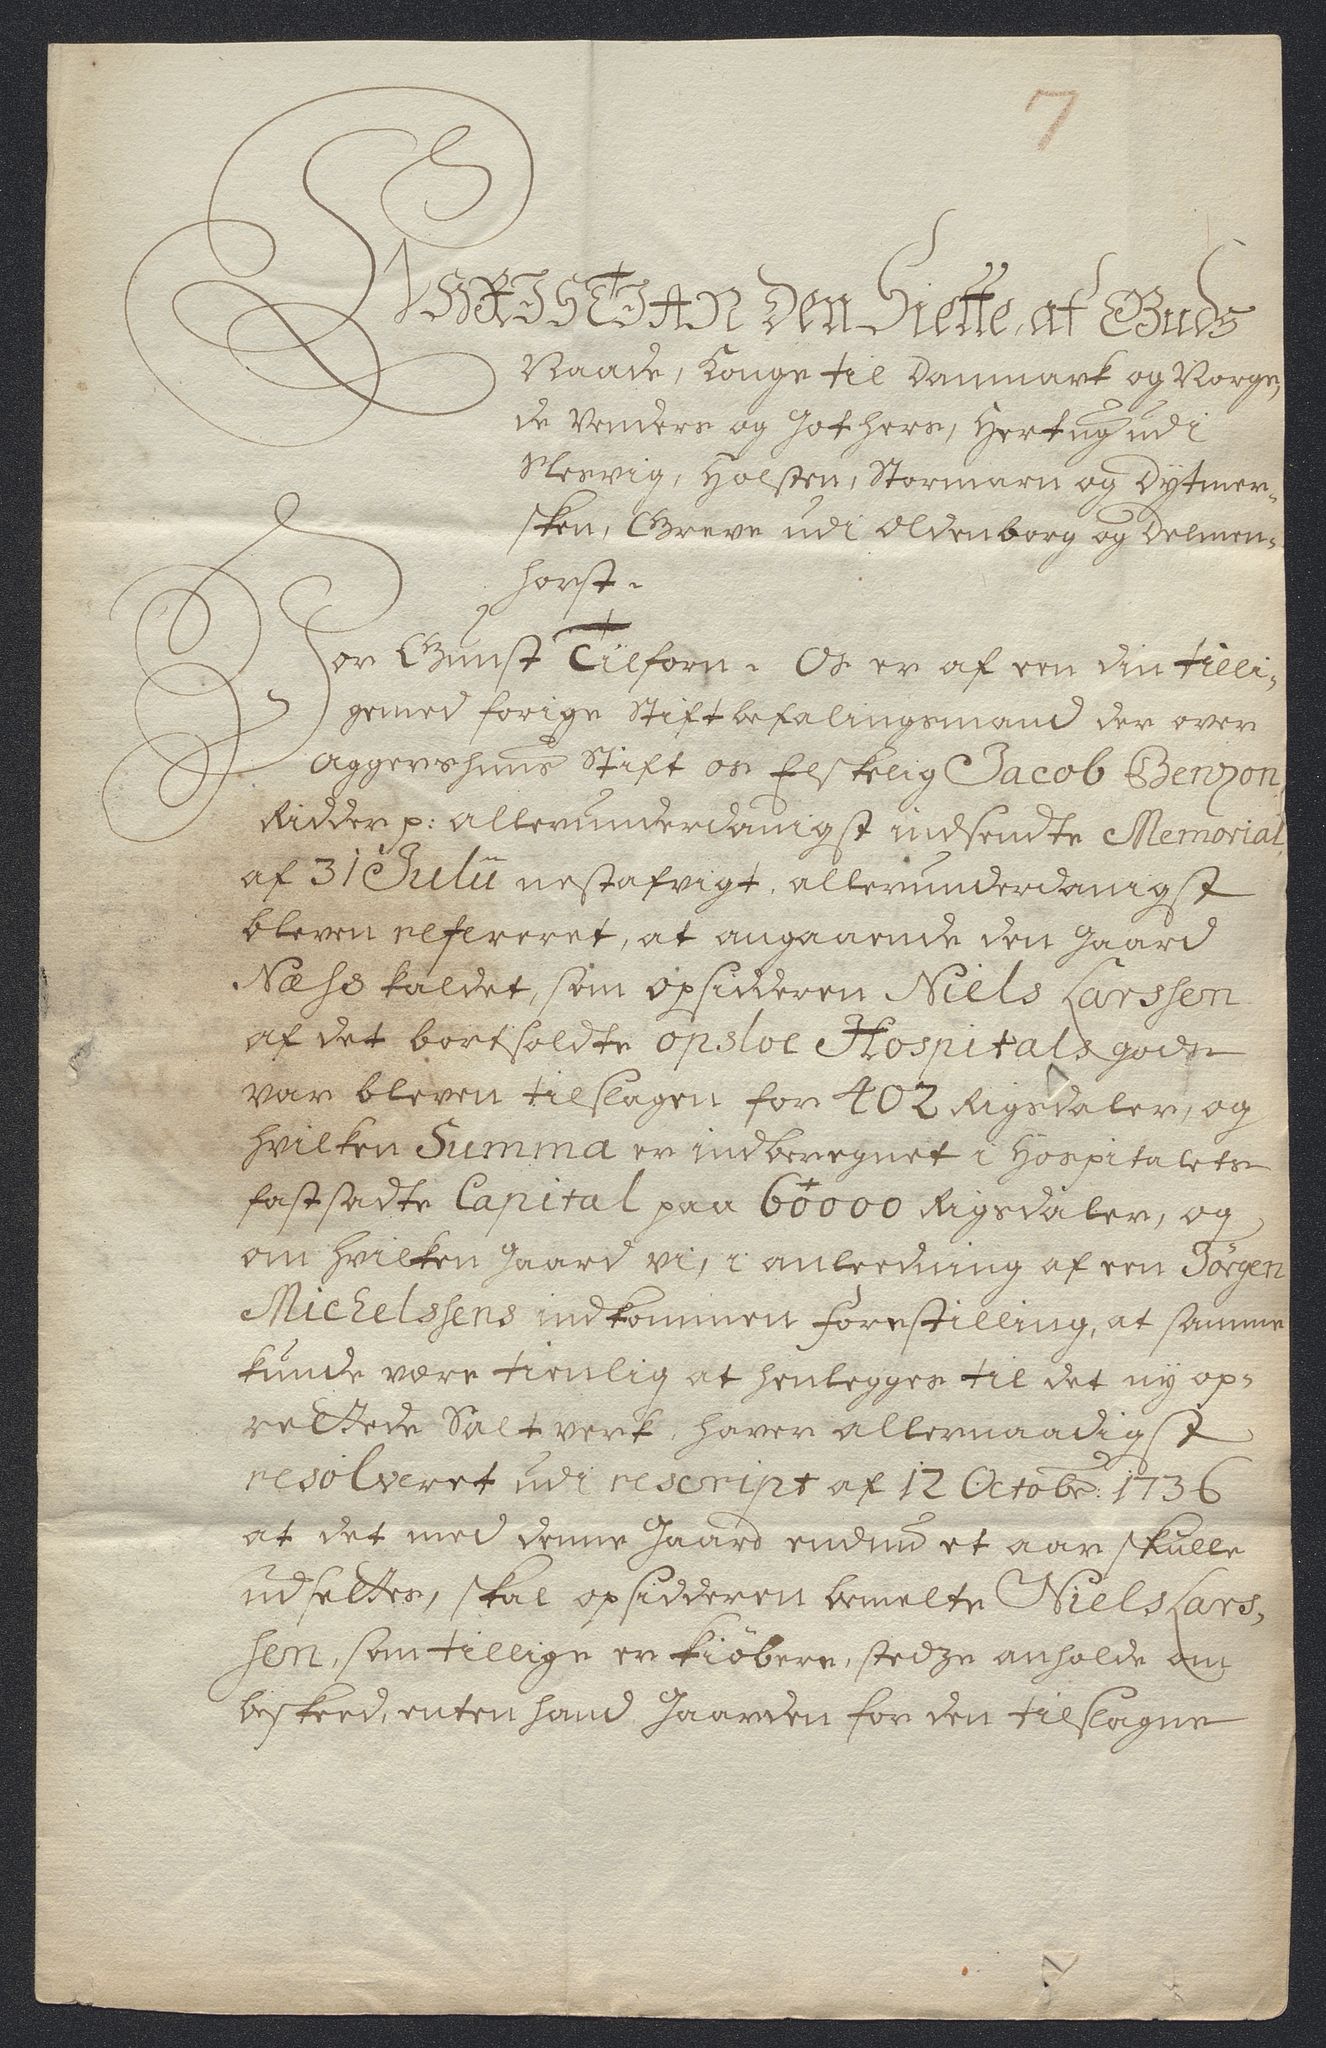 7
CHRISTIAN Den Siette, af Guds
Naade, Konge til Danmark og Norge,
de Venders og Gothers, Hertug udi
Slesvig, Holsten, Stormarn og Dytmer-
sken, Greve udi Oldenborg og Delmen-
horst.
Vor Gunst Tilforn. Os er af een din tilli-
gemed forige Stiftbefalingsmand der over
Aggershuus Stift os Elskelig Jacob Benzon
Ridder p: allerunderdanigst indsendte Memorial
af 31 Julii nestafvigt, allerunderdanigst
bleven refereret, at angaaende den Gaard
Næhs kaldet, som opsidderen Niels Larssen
af det bortsoldte Opsloe Hospitals gods
var bleven tilslagen for 402 Rigsdaler, og
hvilken Summa er indberegnet i Hospitalets
fastsadte Capital paa 60000 Rigsdaler, og
om hvilken Gaard vi, i anleedning af een Jörgen
Michelssens indkommen forestilling, at samme
kunde være tienlig at henlegges til det ny op-
rettede Saltverk, haver allernaadigst
resolveret udi rescript af 12 Octobr: 1736
at det med denne Gaard endnu et aar skulle
udsettes, skal opsidderen bemelte Niels Lars-
sen, som tillige er kiøbere, stedze anholde om
beskeed, enten hand Gaarden for den tilslagne